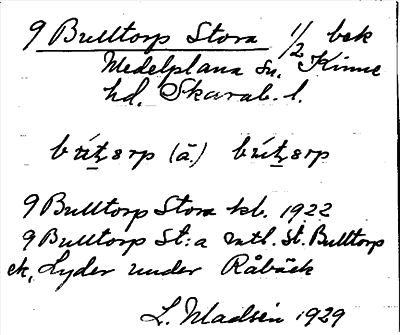 9 Bulltorp Stora 1/2 bek
Medelplana sn. Kinne
hd. Skarab. l.
(ā.)
9 Bulltorp Stora kb. 1922
9 Bulltorp St:a mtl. St. Bulltorp
ek. Lyder under Råbäck
L. Madsén 1929